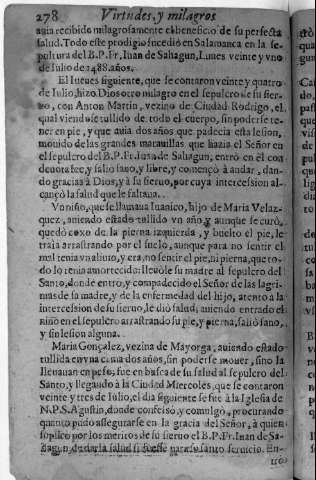 278 Virtudes, y milagros
auia recibido milagrosamente el beneficio de su perfecta
salud. Todo este prodigio sucediò en Salamanca en la se-
pultura del B.P.Fr. Iuan de Sahagun, Lunes veinte y vno
de Iulio de 1488. años.
El Iueues siguiente, que se contaron veinte y quatro
de Iulio, hizo Dios otro milagro en el sepulcro de su sier-
uo, con Anton Martin, vezino de Ciudad Rodrigo, el
qual viendose tullido de todo el cuerpo, sin poderse te-
ner en pie, y que auia dos años que padecia esta lesion,
mouido de las grandes marauillas que hazia el Señor en
el sepulcro del B.P.Fr. Iuan de Sahagun, entrò en èl con
deuota fee, y salio sano, y libre, y començò à andar, dan-
do gracias à Dios, y à su sieruo, por cuya intercession al-
cançò la salud que le faltaua.
Vn niño, que se llamaua Iuanico, hijo de Maria Velaz-
quez, auiendo estado tullido vn año, y aunque se curò,
quedò coxo de la pierna izquierda, y buelto el pie, le
traia arrastrando por el suelo, aunque para no sentir el
mal tenia vn aliuio, y era, no sentir el pie, ni pierna, que to-
do lo tenia amortecido: lleuòle su madre al sepulcro del
Santo, donde entrò, y compadecido el Señor de las lagri-
mas de su madre, y de la enfermedad del hijo, atento a la
intercession de su sieruo, le diò salud, auiendo entrado el
niño en el sepulcro arrastrando su pie, y pierna, saliò sano,
y sin lesion alguna.
Maria Gonçalez, vezina de Mayorga, auiendo estado
tullida en vna cama dos años, sin poderse mouer, sino la
lleuauan en peso, fue en busca de su salud al sepulcro del
Santo, y llegando à la Ciudad Miercoles, que se contaron
veinte y tres de Iulio, el dia siguiente se fue à la Iglesia de
N.P.S. Agustin, donde confessò, y comulgò, procurando
quanto pudo assegurarse en la gracia del Señor, à quien
suplicò por los meritos de su sieruo el B.P.Fr. Iuan de Sa-
hagun, de darla salud si fuesse para su santo seruicio. En-